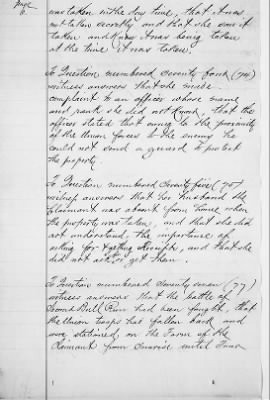 Page
6.
was taken in the day time, that it was
not taken secretly and that she saw it
taken and knew it was being taken
at the time it was taken.
To Question numbered Seventy four (74)
witness answers that she made
complaint to an officer whose name
and rank she did not know, that the
officer stated that owing to the proximity
of the Union forces to the enemy he
could not send a guard to protect
the property.
To Question numbered Seventy five (75)
witness answers that her husband the
Claimant was absent from home when
the property was taken, and that she did
not understand the importance of
asking for or getting Receipts, and that she
did not ask or get them.
To Question numbered Seventy seven (77)
witness answers that the battle of
Second Bull Run had been fought, that
the Union troops had fallen back and
were stationed on the Farm of the
Claimant from Sunrise until Four